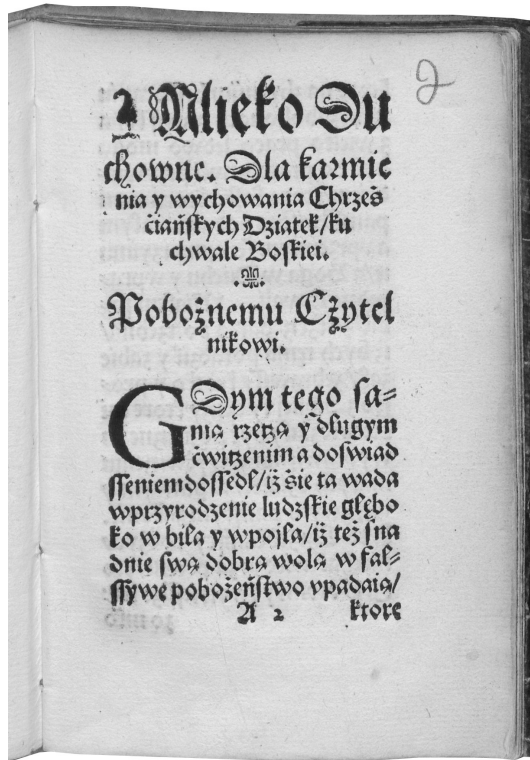 2
Mlieko Du
chowne. Dla karmie
nia y wychowania Chrześ
ciańskych Dziatek/ku
chwale Boskiei.
Pobożnemu Cżytel
nikowi.
GDym tego sa-
mą rzetzą y dlugym
ćwitzenim a doswiad
sseniem dossedl/iż śie ta wada
wprzyrodzenie ludzskie glębo
ko w bila y wpojla/iż też sna
dnie swą dobrą wolą w fal-
ssywe pobożeństwo vpadaią/
A 2 ktore